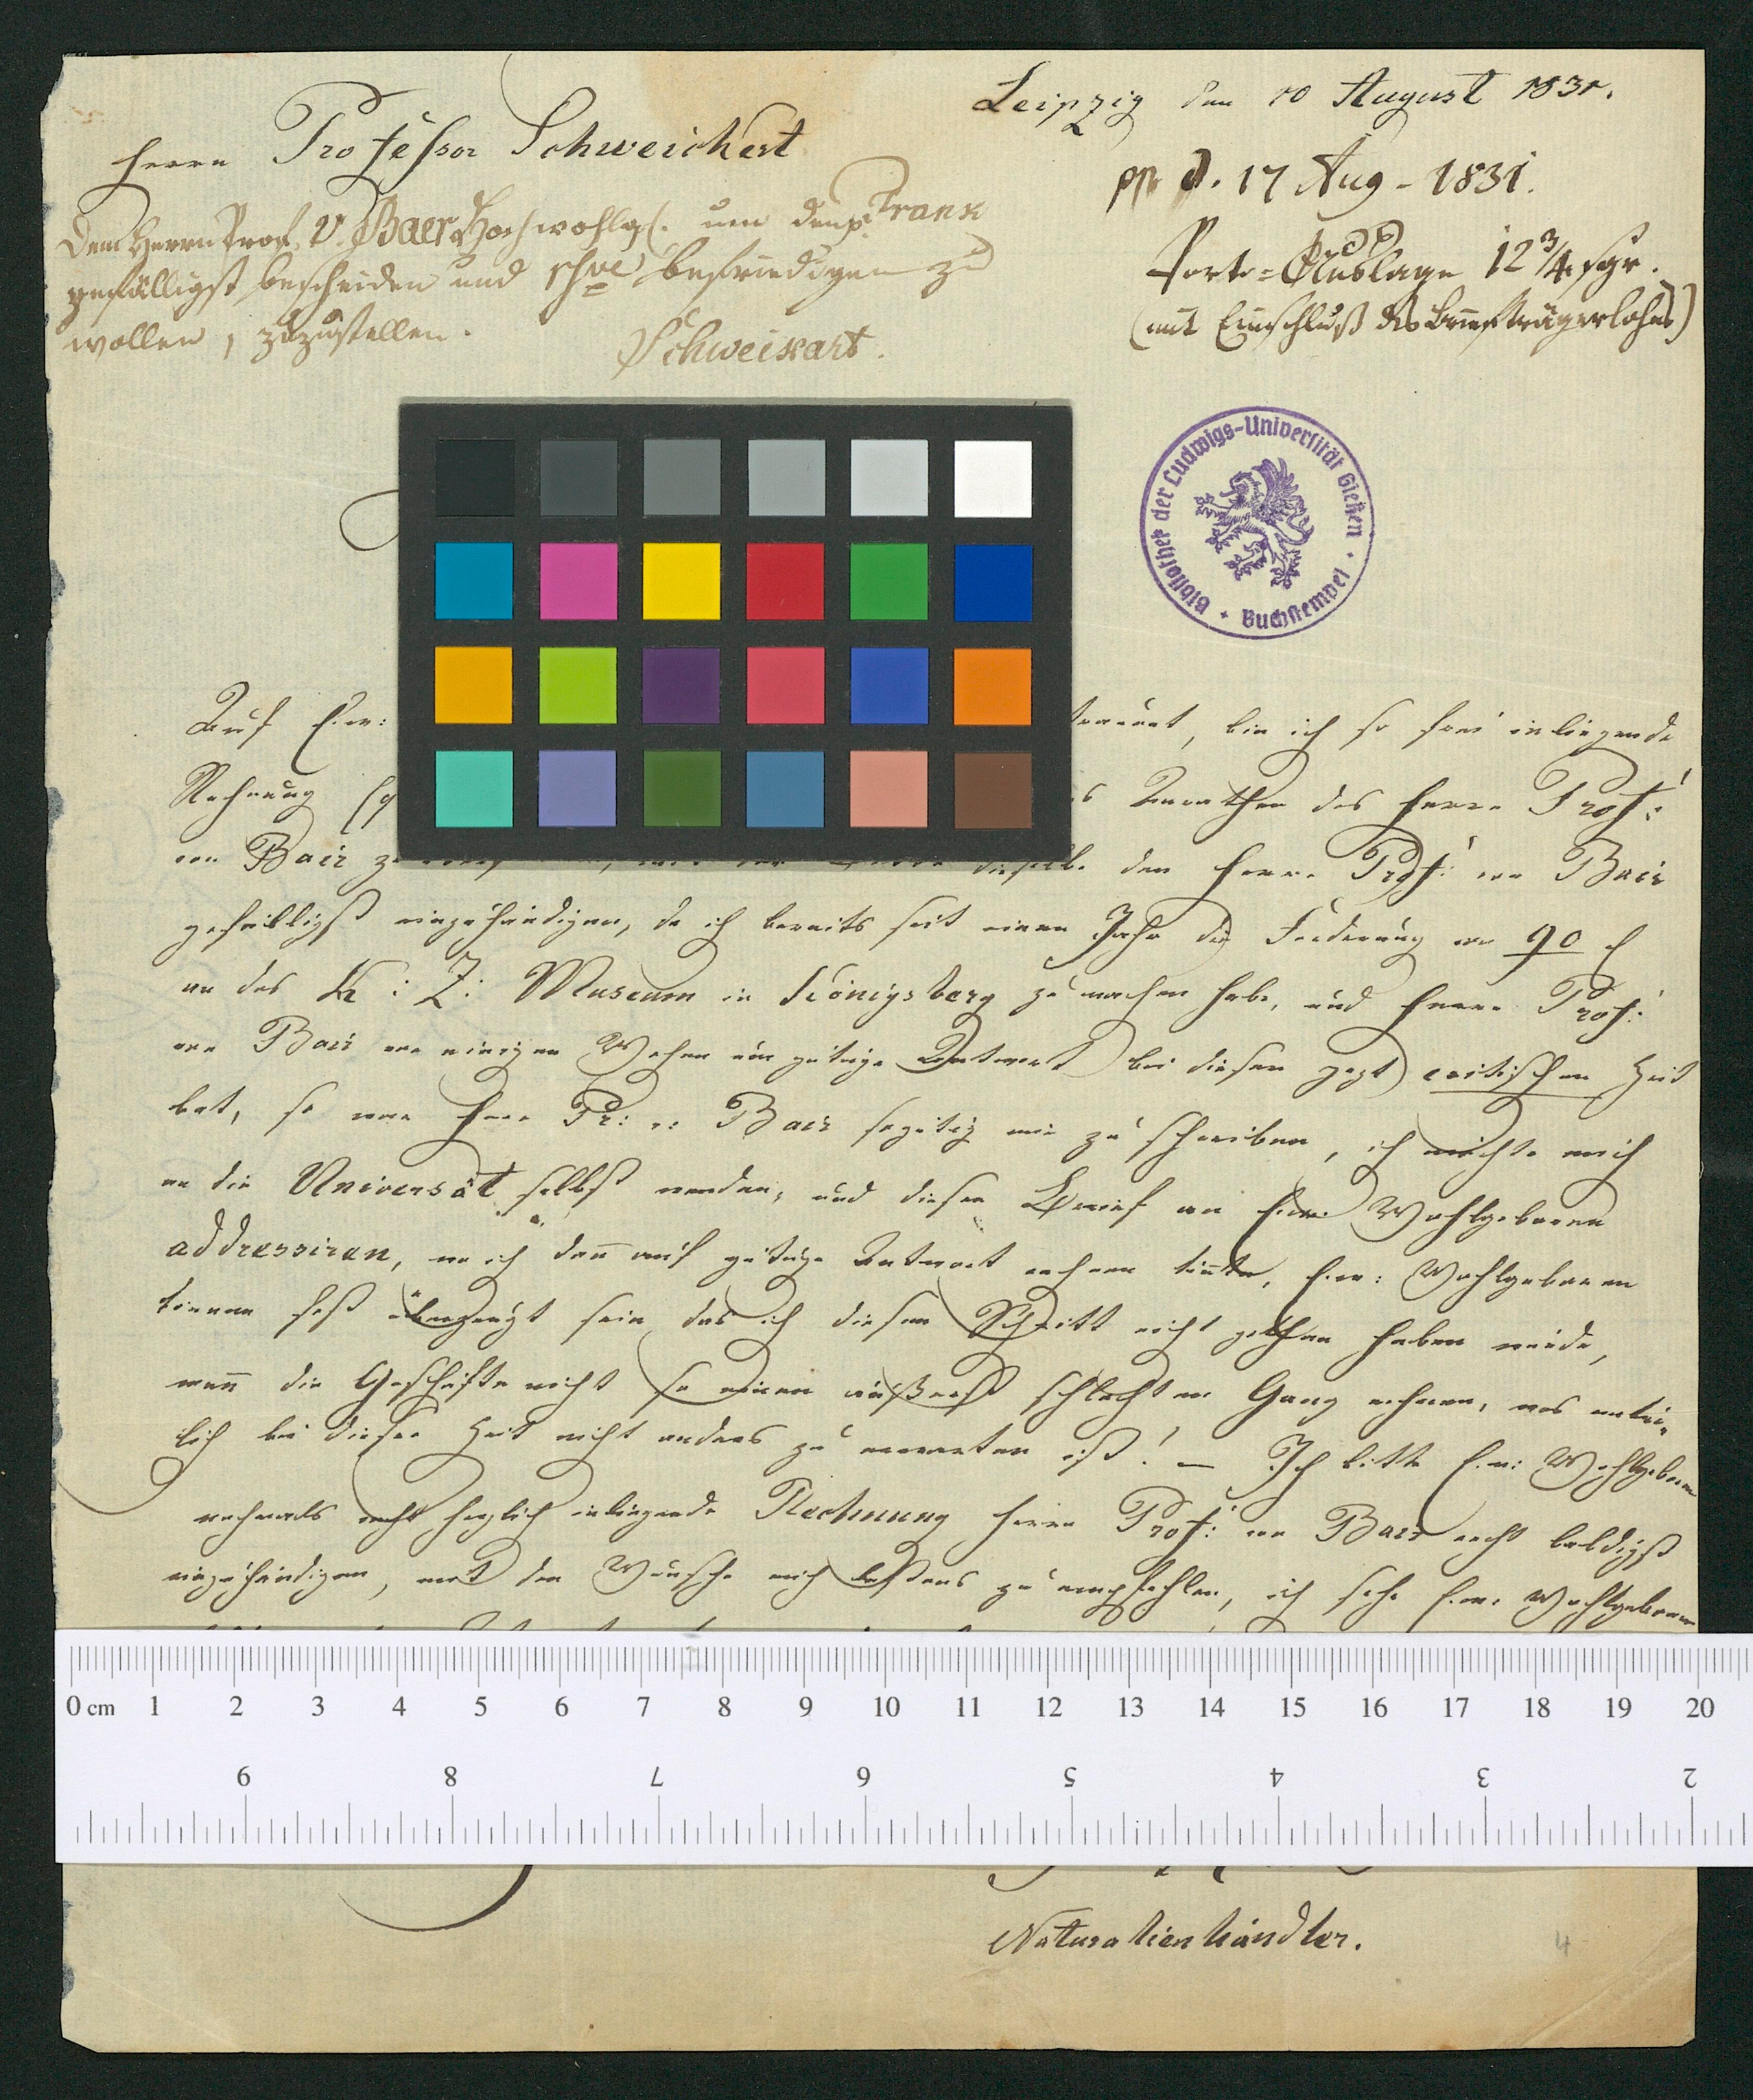 Leipzig den 10 August 1831.
Herrn Professor Schweichert
pp d. 17 Aug - 1831.
Dem Herrn Prof. v. Baer Hochwohlgb. um den p. Frank
gefälligst bescheiden und befriedigen zu
wollen, zuzustellen.
Schweikart.
Porto-Auslage 12 3/4 sgr.
(mit Einschluß des Briefträgerlohns)
Bibliothek der Ludwigs-Universität Gießen · Buchstempel ·
Auf Ew: bin ich so frei inliegende
Rechnung Anrathen des Herrn Prof:
von Baer dieselbe den Herrn Prof: von Baer
gefälligst einzuhändigen, da ich bereits seit einem Jahr die Forderung von 90
an das K: Z: Museum in Königsberg zu machen habe, und Herrn Prof:
von Baer vor einigen Wochen um gütige Antwort bei dieser jezt critischen Zeit
bat, so war Herr Pr: v: Baer so gütig mir zu schreiben, ich möchte mich
an die Universät selbst wenden, und diesen Brief an Ew: Wohlgeboren
addressiren, wo ich dann auf gütige Antwort rechnen könnte, Ew: Wohlgeboren
können fest überzeugt sein das ich diesen Schritt nicht gethan haben würde,
wenn die Geschäfte nicht so einen äußerst schlechten Gang nehmen, was natür-
lich bei dieser Zeit nicht anders zu erwarten ist! – Ich bitte Ew: Wohlgeboren
nochmals recht herzlich inliegende Rechnung Herrn Prof: von Baer recht baldigst
einzuhändigen, mit dem Wunsche mich bestens zu empfehlen, ich sehe Ew: Wohlgeboren
0 cm 1 2 3 4 5 6 7 8 9 10 11 12 13 14 15 16 17 18 19 20
9 8 7 6 5 4 3 2
Naturalienhändler.
4